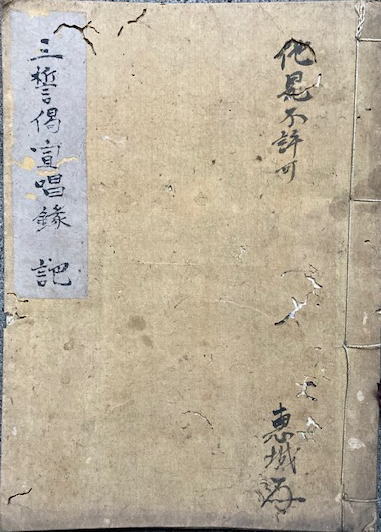 他見不許可
恵城
三誓偈宣唱録 記